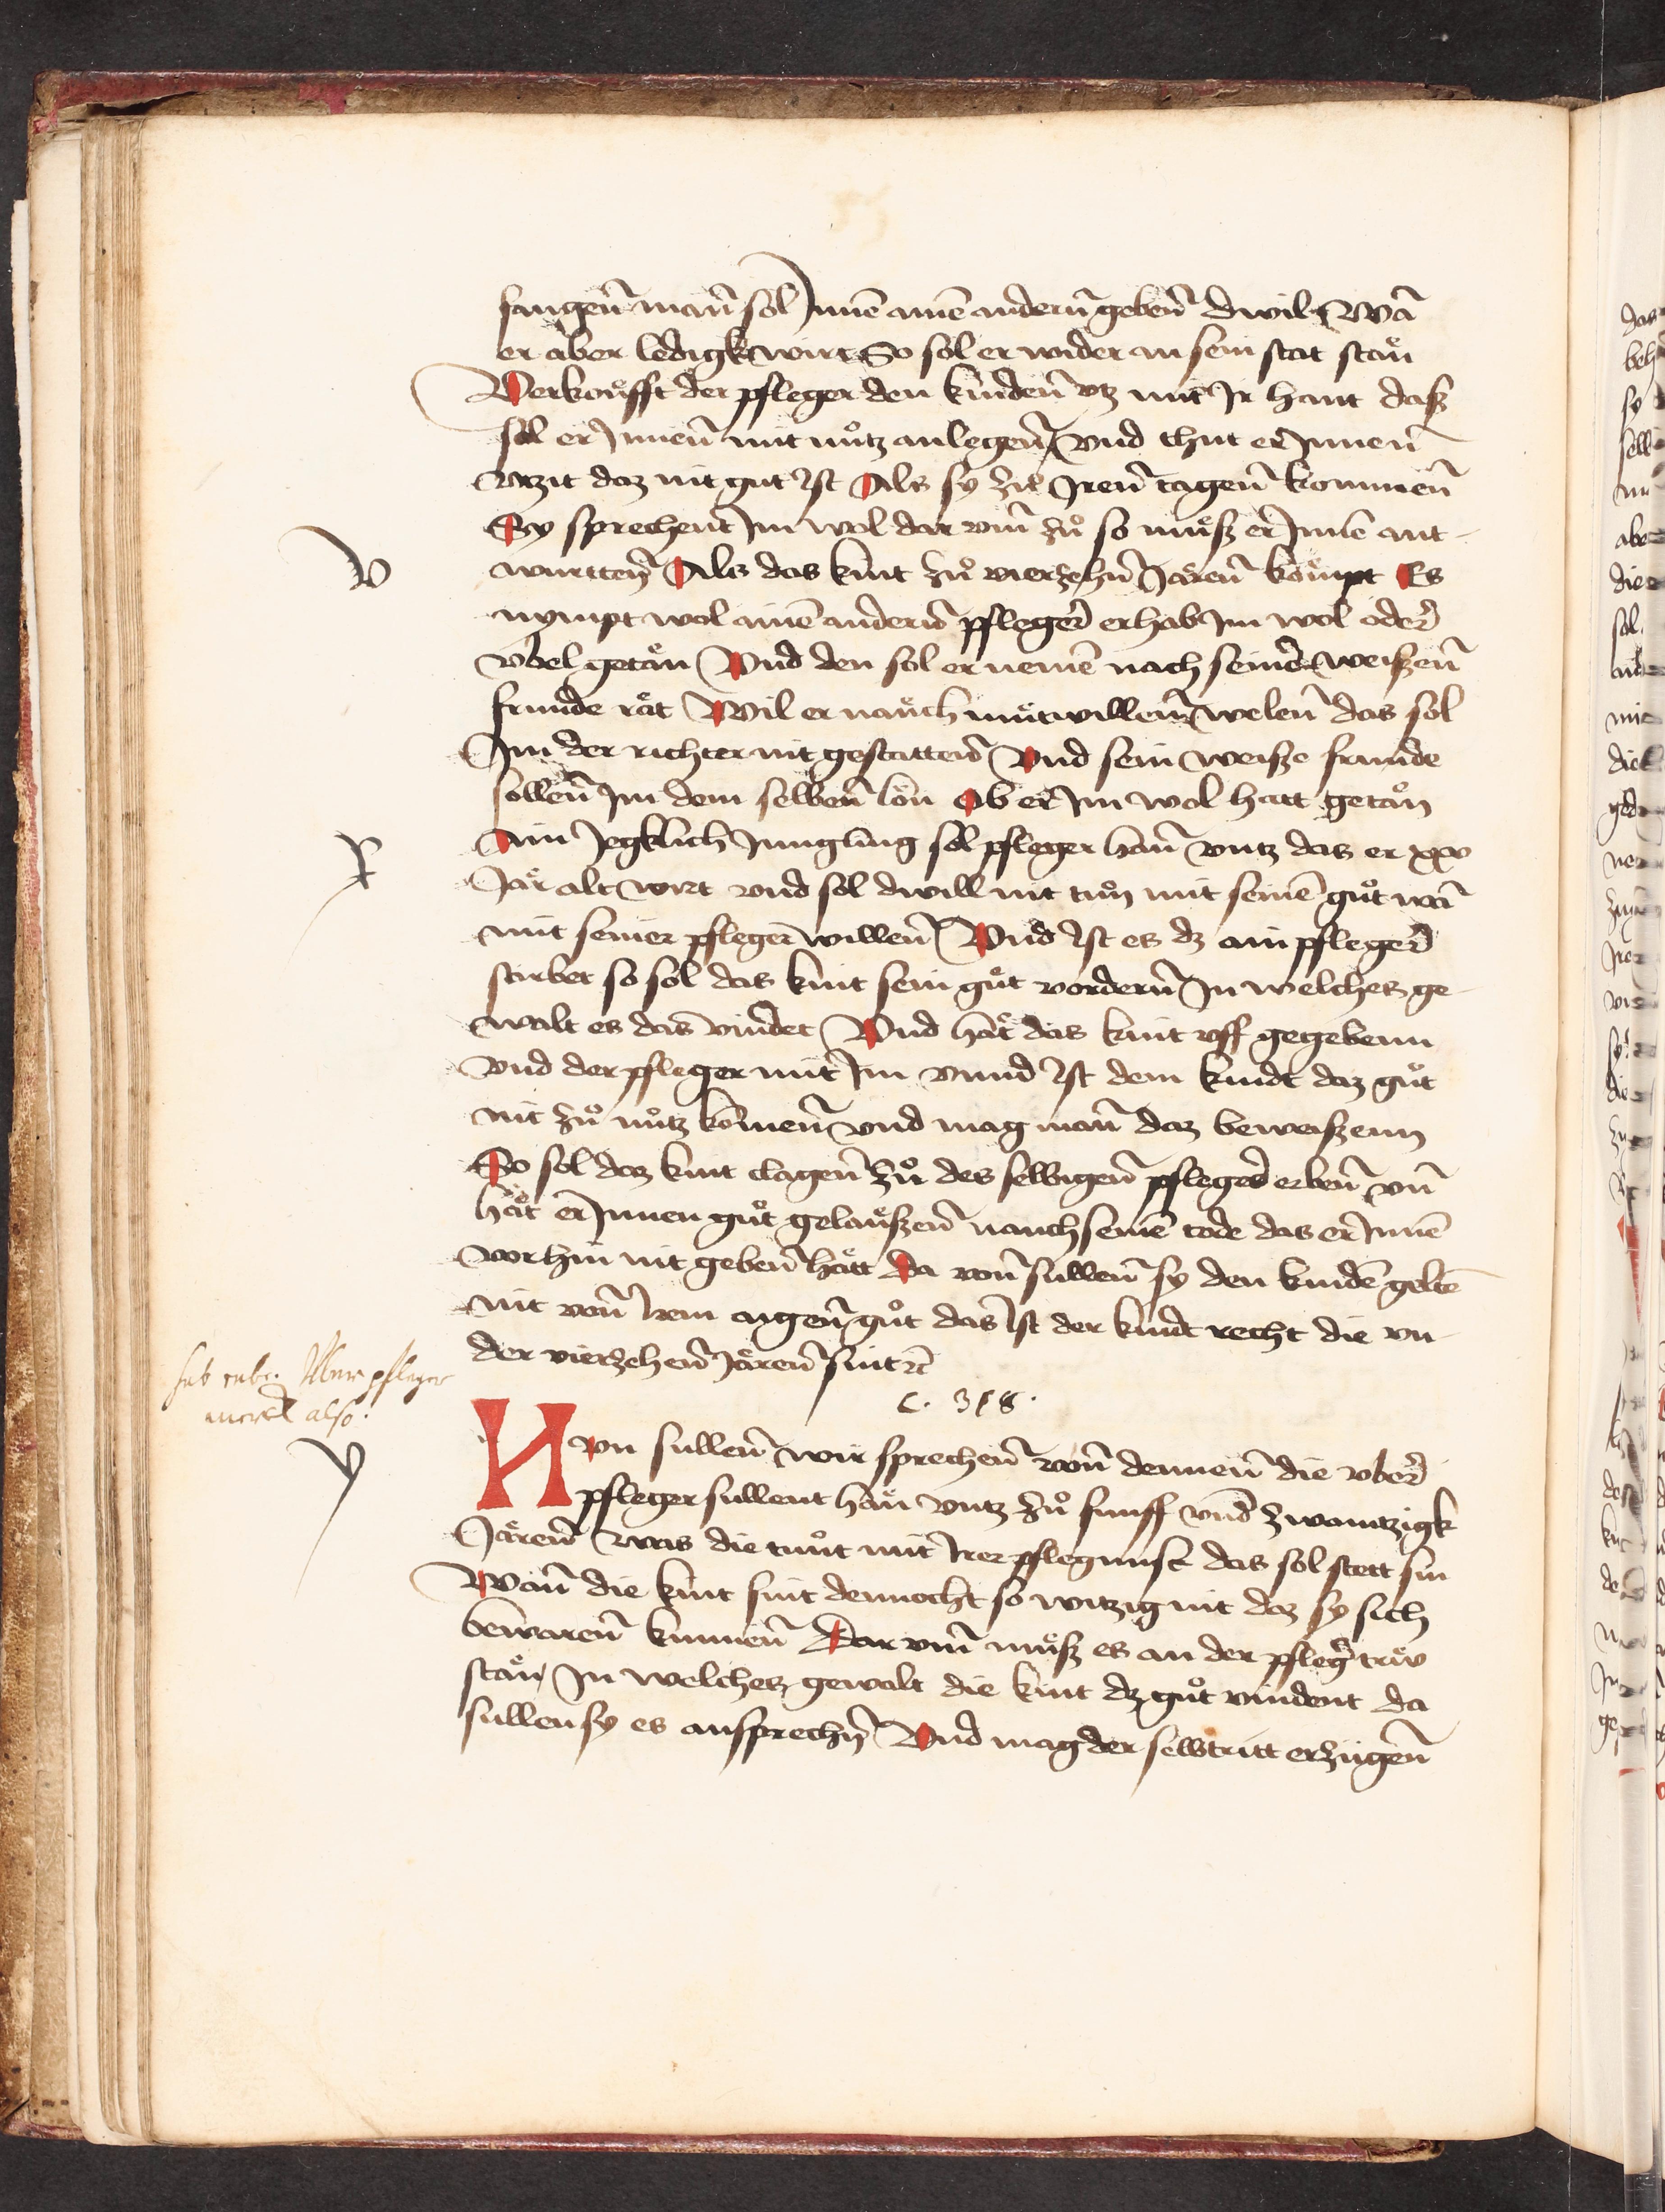 fangen̄ man̄ sol Jnnē ainē andern̄ geben̄ dwil Wā
er aber ledigk wirt So sol er wider an sein stat stan
Verkoufft der pfleger den kinden̄ vtz mit Jr hant dasz
sol er Jnnen̄ mit nutz anlegen̄ vnd thut er Jnnen̄
vtzit daz nit gut Jst Als sy zu Jren̄ tagen̄ kommen̄
Sy sprechent Jm wol dar vm̄ zu so musz er Jnnē ant-
wurtten̄ Als das kint zu vierzehn̄ Jaren̄ kompt Es
nympt wol ainē andern̄ pfleger er hab Jm wol oder
vbel getan Vnd den sol er nemē nach seiner weiszen̄
frunde rat Wil er nauch mutwillen̄ welen̄ das sol
Jm der richter nit gestatten̄ Vnd sein weisze frunde
sollen̄ Jm dem selben̄ lon Ob er Jm wol hatt getan
Ain Jegklich Jungling sol pfleger han̄ vntz das er xxv
Jar alt wirt vnd sol dwill nit tun mit seinē gut wā
mit seiner pfleger willen̄ Vnd Jst es dz ain pfleger
stirbet so sol das kint sein gut vordern̄ Jn welches ge-
walt es das vindet Vnd hat das kint vff gegebenn
vnd der pfleger mit Jm vnnd Jst dem kindt daz gut
nit zu nutz komen̄ vnd mag man̄ daz beweiszenn
So sol daz kint clagen̄ zu des selbigen̄ pflegers erben̄ vn̄
hat er Jnnen gut gelauszen̄ nauch seinē tode das er Jnnē
vorhin nit geben̄ hatt da von̄ sullen̄ sy den kindē geltē
nit von̄ Jrem aigen̄ gut das Jst der kindt recht die vn-
der vierzehen̄ Jaren̄ sint etc
sub rubr. Aber pfleger
merck also:
c. 318.
Nvn sullen̄ wir sprechen̄ von̄ dennen̄ die vber
pfleger sullent han vntz zu funff vnd zwantzigk
Jaren̄ was die tunt mit Jrer pflegnust das sol stett sin
Wan̄ die kint sint dennocht so witzig nit daz sy sich
bewaren̄ kunnen̄ Dar vm̄ musz es an der pfleger trüv
stan Jn welches gewalt die kint dz gut vindent da
sullen sy es ansprechn̄ Vnd mag der selbtritt erzügen̄